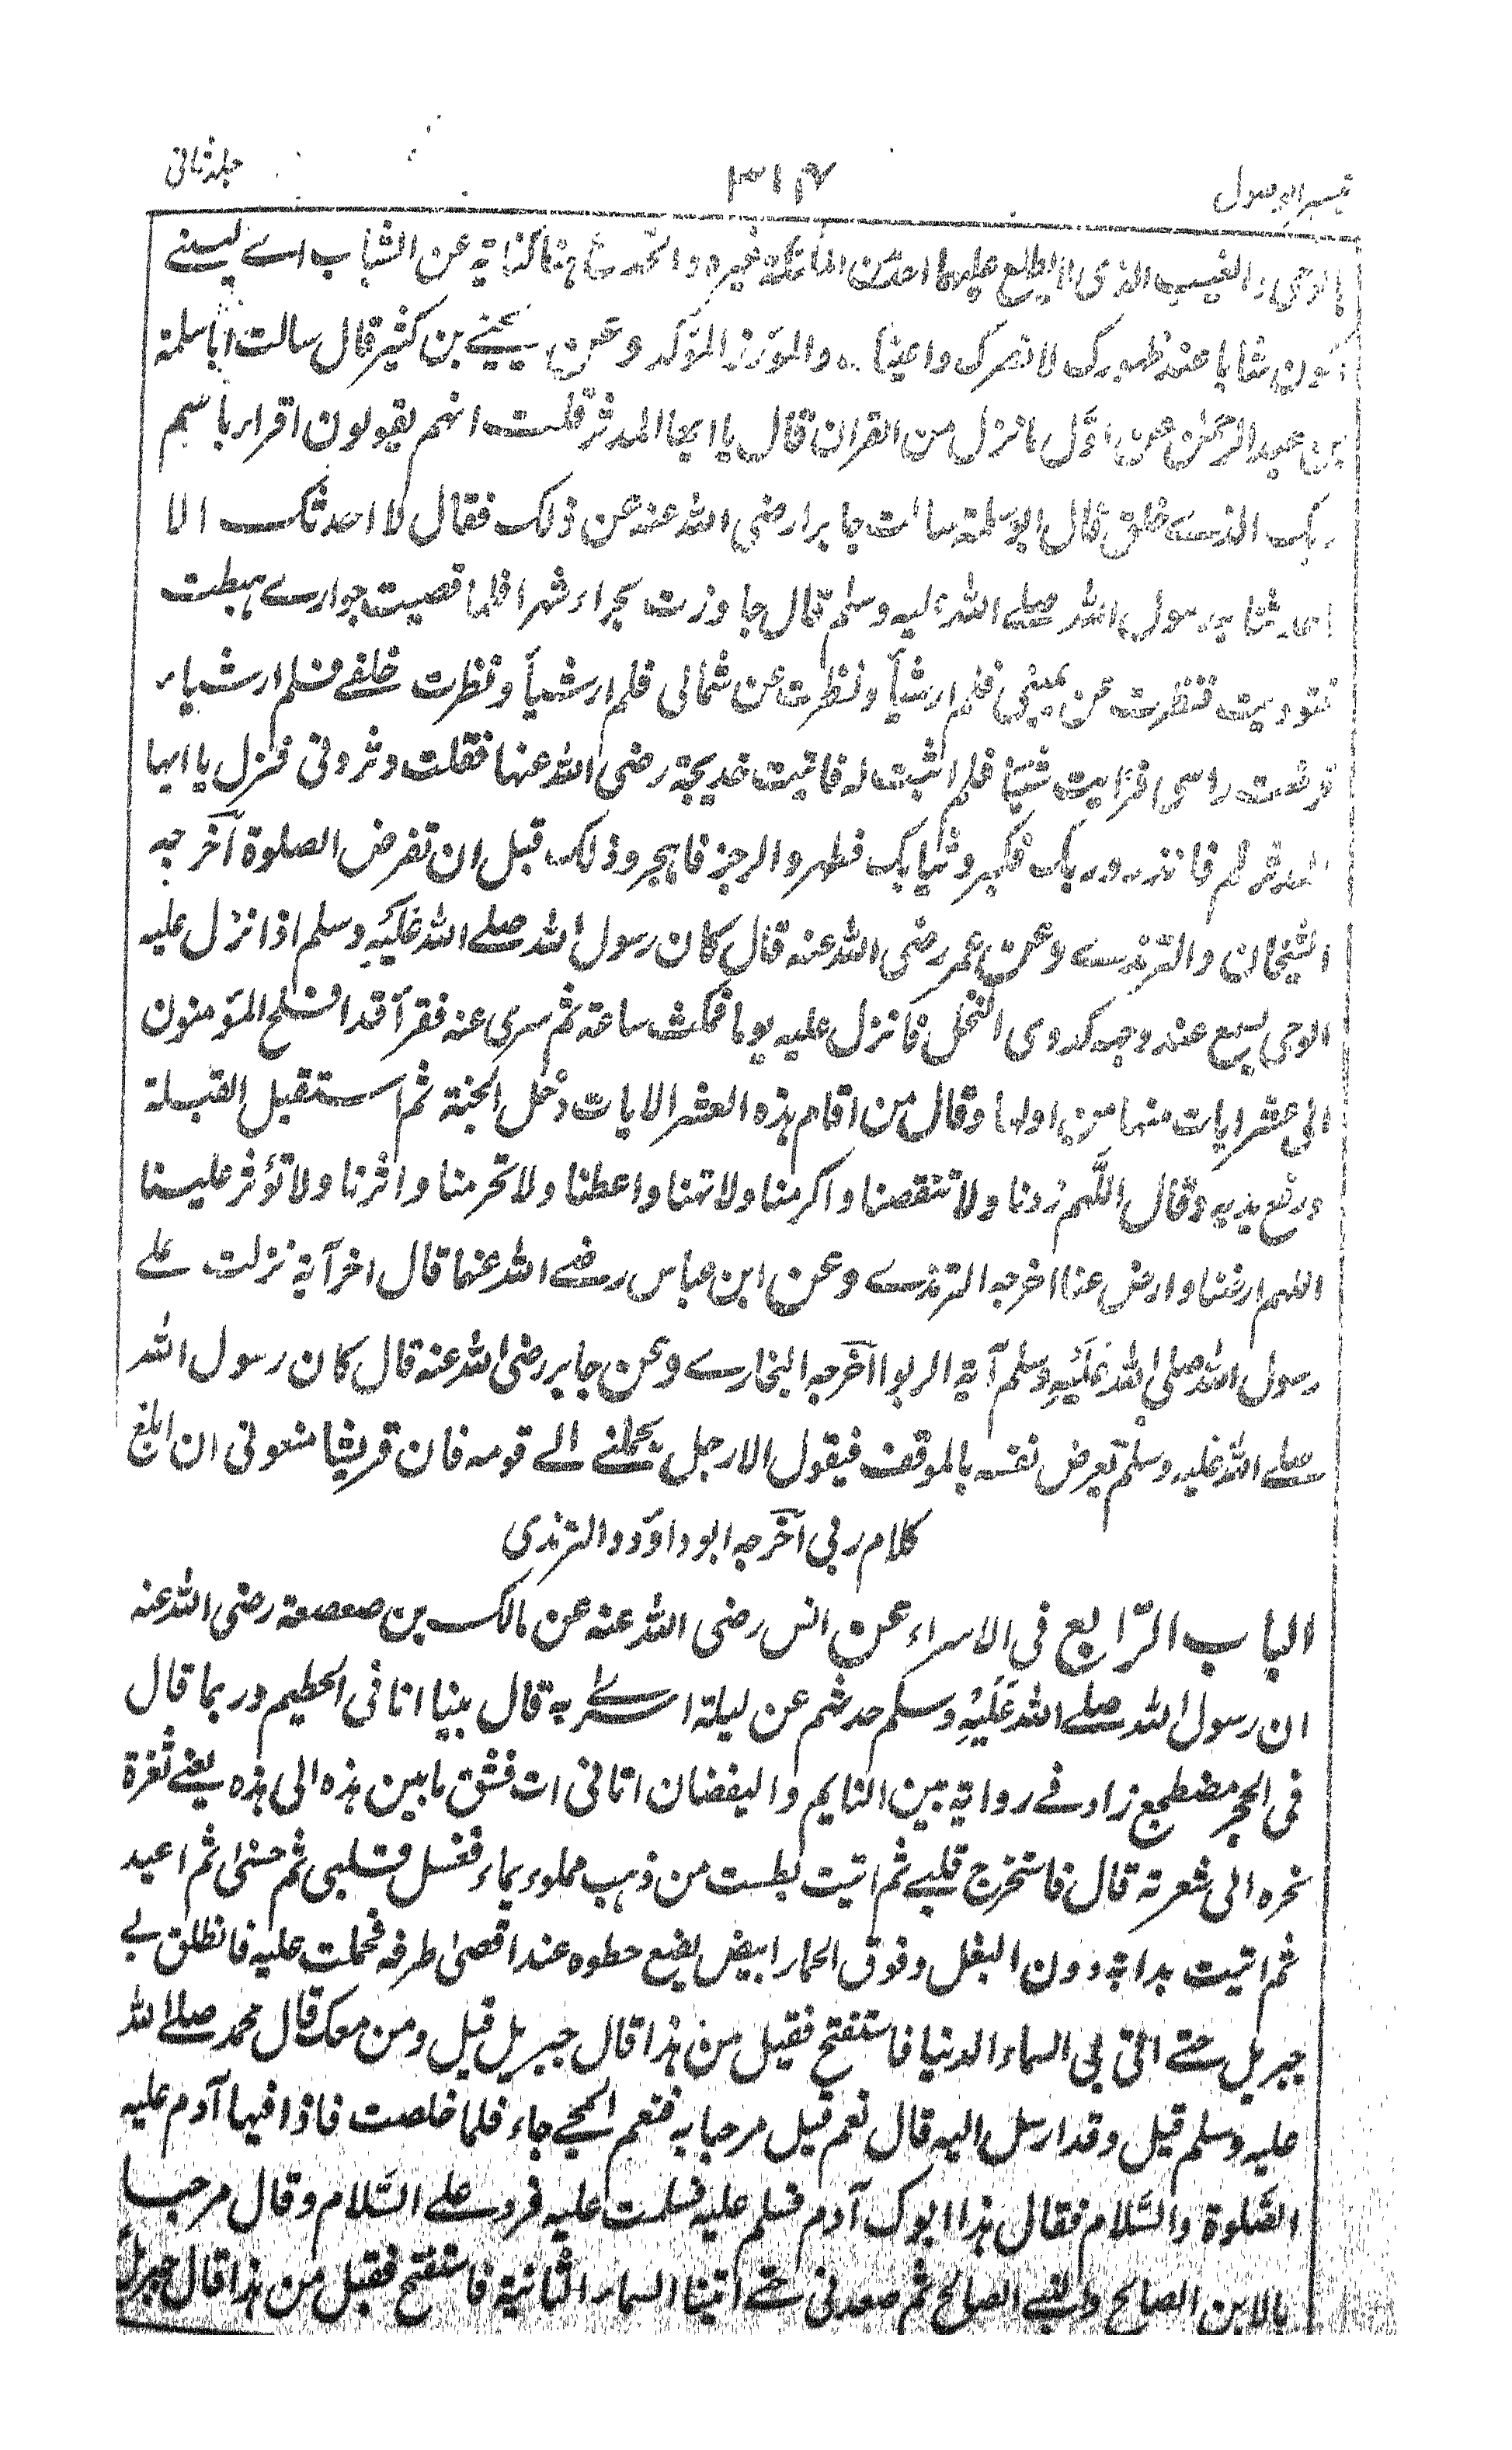 تيسير الوصول ٣١٤ جلد ثانی
بالوحی والغيب الذی لا يطلع عليهما احد من الملائكة غيره والجذع هنا كناية عن الشباب اے ليتنے
اكون شابا عند ظهورك لانصرك واعينك والمؤزر المؤكد وعن يحيے بن كثير قال سالت ابا سلمة
بن عبد الرحمٰن عن اوّل ما نزل من القران قال يا ايها المدثر قلت انهم يقولون اقرا باسم
ربك الذے خلق قال ابو سلمة سالت جابرا رضی الله عنه عن ذلك فقال لا احدثك الا
ما حدثنا به رسول الله صلے الله عليه وسلم قال جاورت بحراء شهرا فلما قضيت جوارے هبطت
فنوديت فنظرت عن يمينی فلم ار شيأ ونظرت عن شمالی فلم ار شيأ ونظرت خلفے فلم ار شياء
فرفعت راسی فرايت شيئا فلم اثبت له فاتيت خديجة رضی الله عنها فقلت دثرونی فنزل يا ايها
المدثر قم فانذر وربك فكبر وثيابك فطهر والرجز فاهجر وذلك قبل ان تفرض الصلوة آخرجه
الشيخان والترمذے وعن عمر رضی الله عنه قال كان رسول الله صلے الله عَلَيْهِ وسلم اذا نزل عليه
الوحی يسمع عند وجهه كدوی النحل فانزل عليه يوما فمكث ساعة ثم سری عنه فقرأ قد افلح المؤمنون
الی عشر ايات منها من اولها وقال من اقام هذه العشر الايات دخل الجنة ثم استقبل القبلة
ورفع يديه وقال اللّٰهم زدنا ولا تنقصنا واكرمنا ولا تهنا واعطنا ولا تحرمنا واثرنا ولا تؤثر علينا
اللهم ارضنا وارض عنا اخرجه الترمذے وعن ابن عباس رضے الله عنهما قال اخر آية نزلت علے
رسول الله صلی الله عَلَيْهِ وسلم آية الربوا آخرجه البخارے وعن جابر رضی الله عنه قال كان رسول الله
صلے الله عليه وسلم يعرض نفسه بالموقف فيقول الا رجل يحملنے الے قومه فان قريشا منعونی ان ابلغ
كلام ربی آخرجه ابو داؤد والترمذی
الباب الرّابع فی الاسراء عن انس رضی الله عنه عن مالك بن صعصعة رضی الله عنه
ان رسول الله صلے الله عَلَيْهِ وسلم حدثهم عن ليلة اسرے به قال بينا انا فی الحطيم وربما قال
فی الحجر مضطجع زاد فے رواية بين النايم واليقضان اتانی ات فشق ما بين هذه الی هذه يعنے ثغرة
نحره الی شعرته قال فاستخرج قلبے ثم اتيت بطست من ذهب مملوء بماء فغسل قلبی ثم حشیٰ ثم اعيد
ثم اتيت بدابة دون البغل وفوق الحمار ابيض يضع خطوه عند اقصیٰ طرفه فحملت عليه فانطلق بے
جبريل حتے اتی بی السماء الدنيا فاستفتح فقيل من هذا قال جبريل قيل ومن معك قال محمد صلے الله
عليه وسلم قيل وقد ارسل اليه قال نعم قيل مرحبا به فنعم المجے جاء فلما خلصت فاذا فيها آدم عليه
الصّلوة والسّلام فقال هذا ابوك آدم فسلم عليه فسلمت عليه فرد علے السّلام وقال مرحبا
بالابن الصالح والنبے الصالح ثم صعد نی حتے اتينا السماء الثانية فاستفتح فقيل من هذا قال جبريل